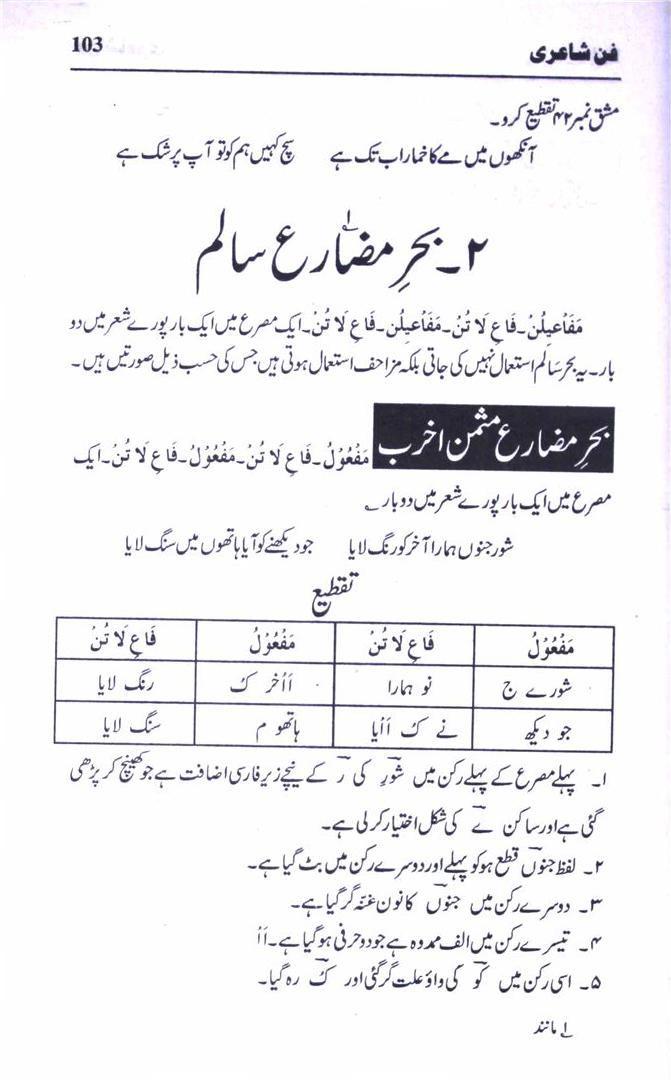 فن شاعری 103
مشق نمبر ۴۲ تقطیع کرو۔
آنکھوں میں مے کا خمار اب تک ہے سچ کہیں ہم کو تو آپ پر شک ہے
۲۔ بحرِ مضارع سالم
مَفَاعِیلُنْ۔ فَاعِ لَا تُنْ۔ مَفَاعیلُن۔ فَاعِ لَا تُنْ۔ ایک مصرع میں ایک بار پورے شعر میں دو
بار۔ یہ بحر سالم استعمال نہیں کی جاتی بلکہ مزاحف استعمال ہوتی ہیں جس کی حسب ذیل صورتیں ہیں۔
بحرِ مضارع مثمن اخرب مَفْعُوْلُ۔ فَاعِ لَا تُنْ۔ مَفْعُوْلُ۔ فَاعِ لَا تُنْ۔ ایک
مصرع میں ایک بار پورے شعر میں دو بار؎
شور جنوں ہمارا آخر کو رنگ لایا جو دیکھنے کو آیا ہاتھوں میں سنگ لایا
تقطیع
مَفْعُوْلُ فَاعِ لَا تُنْ مَفْعُوْلُ فَاعِ لَا تُنْ
شورے ج نو ہمارا اَاْخر ک رنگ لایا
جو دیکھ نے ک اَاْیا ہاتھو م سنگ لایا
۱۔ پہلے مصرع کے پہلے رکن میں شورِ کی ر کے نیچے زیر فارسی اضافت ہے جو کھینچ کر پڑھی
گئی ہے اور ساکن ے کی شکل اختیار کر لی ہے۔
۲۔ لفظ جنوں قطع ہو کو پہلے اور دوسرے رکن میں بٹ گیا ہے۔
۳۔ دوسرے رکن میں جنوں کا نون غنّہ گر گیا ہے۔
۴۔ تیسرے رکن میں الف ممدوہ ہے جو دو حرفی ہو گیا ہے۔ اَاْ
۵۔ اسی رکن میں کو کی واؤ علت گر گئی اور ک رہ گیا۔
۱ مانند